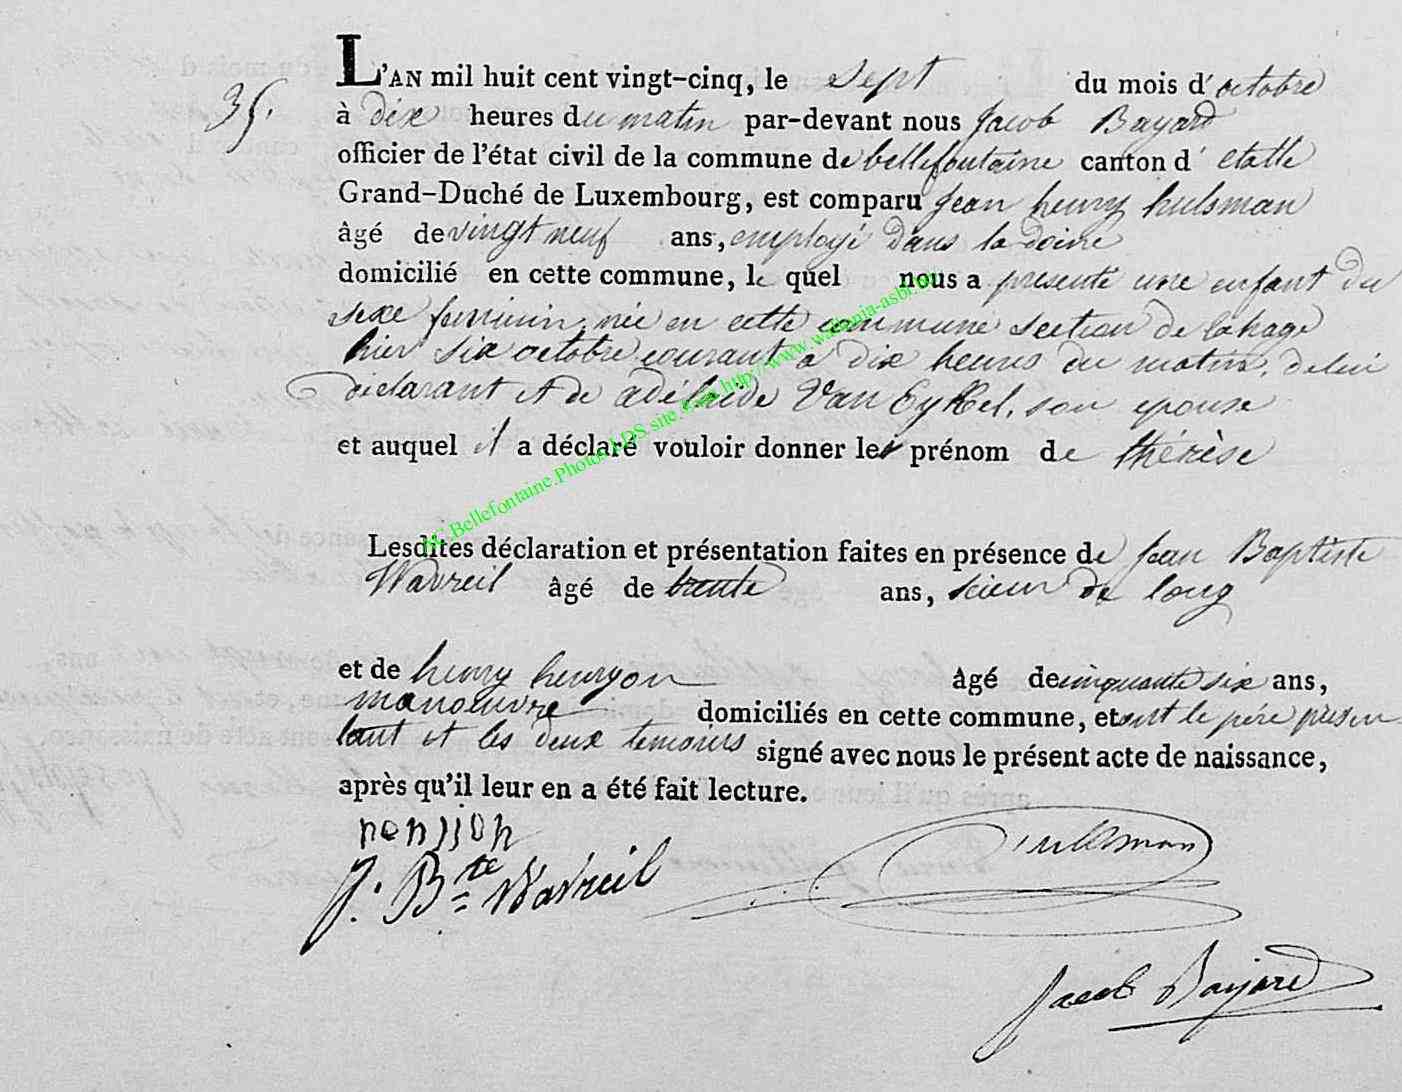 35.
L'AN mil huit cent vingt-cinq, le sept du mois d'octobre
à dix heures du matin par-devant nous Jacob Bayard
officier de l'état civil de la commune de bellefontaine canton d'etalle
Grand-Duché de Luxembourg, est comparu Jean henry hulsman
âgé de vingt neuf ans, employé dans la
domicilié en cette commune, le quel nous a presenté une enfant du
sexe feminin, née en cette commune section de lahage
hier six octobre courant a dix heures du matin, de lui
déclarant et de adélaide Van Eykel, son epouse
et auquel il a déclaré vouloir donner les prénom de thérèse
AC.Bellefontaine.Photos LDS site http://www.wallonia-asbl
Lesdites déclaration et présentation faites en présence de Jean Baptiste
Wavreil âgé de trente ans, scieur de long
et de henry henryon âgé de cinquante six ans,
manœuvre domiciliés en cette commune, et ont le père présen
tant et les deux temoins signé avec nous le présent acte de naissance,
après qu'il leur en a été fait lecture.
J. Bte Wavreil
hulsman
Jacob Bayard